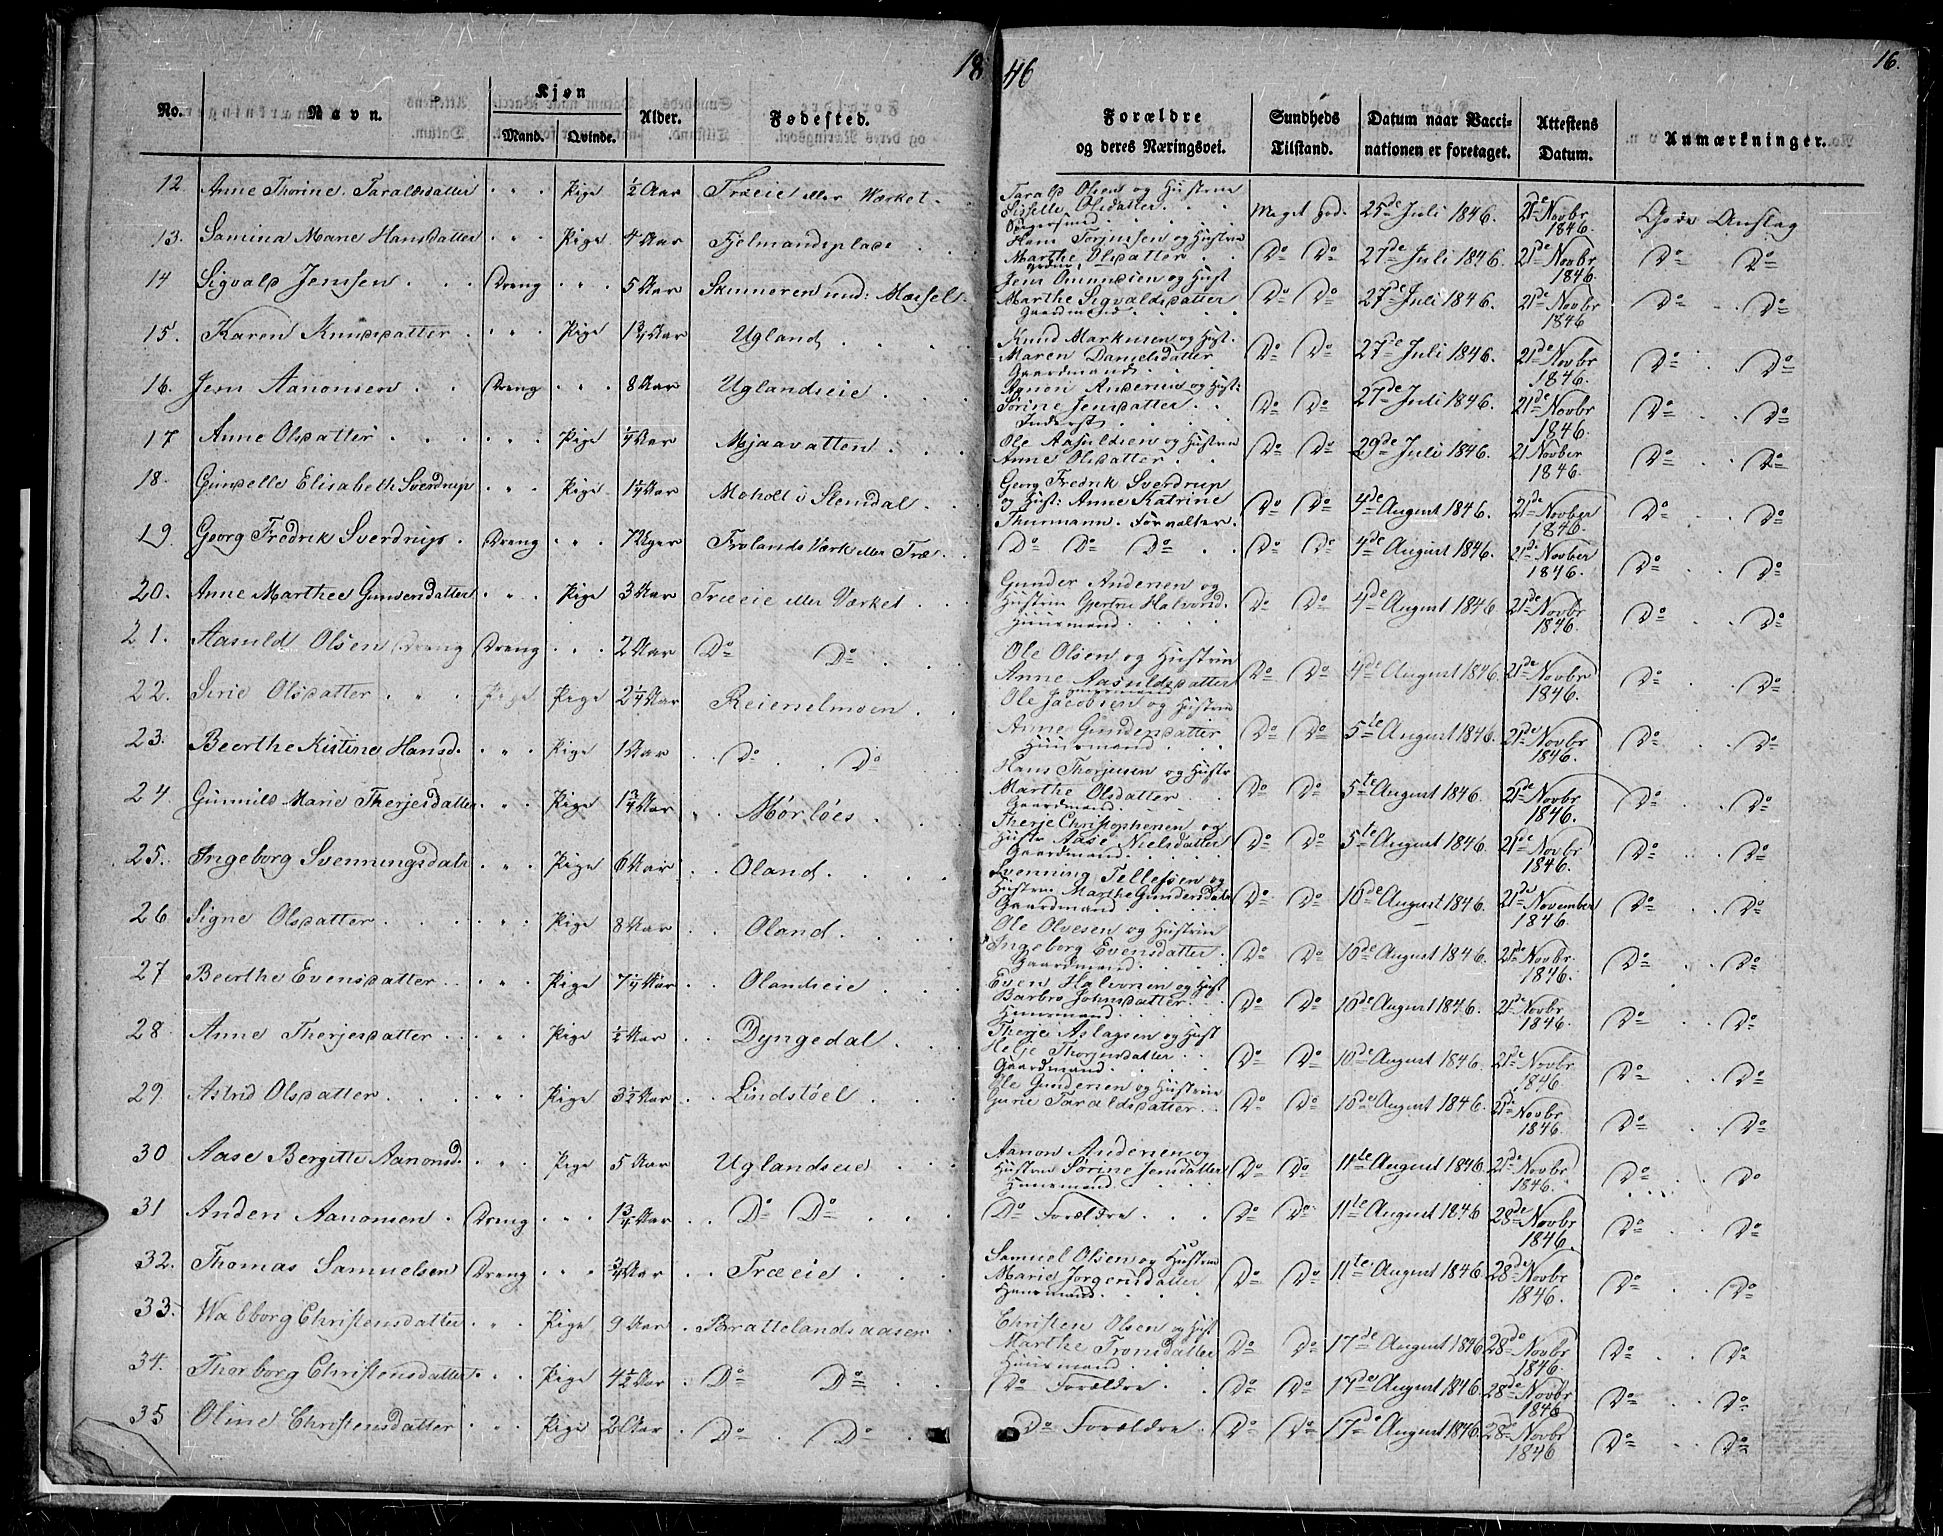 1846
16.
No. Navn. Kjøn Mand. Qvinde. Alder. Fødested. Forældre og deres Næringsvei. Sundheds Tilstand. Datum naar Vaccinationen er foretaget. Attestens Datum. Anmærkninger.
12 Anne Thorine Taraldsdatter " " Pige ½ Aar Træeie eller Værket. Tarald Olsen og Hustrue Sisselle Olsdatter. Meget god. 25de Juli 1846. 21de Novbr 1846. Gode Anslag
13. Samina Marie Hansdatter " " Pige 4 Aar Fjelmandsplads Hans Torjussen og Hustrue Marthe Olsdatter Do Do 27de Juli 1846. 21de Novbr 1846. Do Do
14 Sigvald Jenssen Dreng " " 5 Aar Skinneren und: Messel Jens Omundsen og Hust Marthe Sigvaldsdatter Gaardmand Do Do 27de Juli 1846. 21de Novbr 1846 Do Do
15. Karen Knudsdatter " " Pige 1¾ Aar Ugland Knud Markusen og Hust. Maren Danielsdatter Gaardmand Do Do 27de Juli 1846. 21de Novbr 1846. Do Do
16. Jens Aanonsen Dreng " " 8 Aar Uglandseie Aanon Andersen og Hust: Sørine Jensdatter Inderst Do Do 27de Juli 1846. 21de Novbr 1846. Do Do
17 Anne Olsdatter " " Pige ¼ Aar Mjaavatten Ole Aasuldsen og Hustrue Anne Olsdatter Do Do 29de Juli 1846. 21 Novber 1846. Do Do
18. Gunselle Elisabeth Sverdrup " " Pige 1¼ Aar Moholt i Slemdal Georg Fredrik Sverdrup og Hust: Anne Katrine Thurmann. Forvalter. Do Do 4de August 1846. 21de Novber 1846. Do Do
19. Georg Fredrik Sverdrup. Dreng " " 7 Uger Frolands Værk eller Træ Do Do Do Do Do 4de August 1846. 21de Novber 1846. Do Do
20. Anne Marthee Gundersdatter " " Pige 3 Aar Træeie eller Værket Gunder Andersen og Hustrue Gjertru Halvorsd. Huusmand Do Do 4de August 1846 21de Novbr 1846. Do Do
21. Aasuld Olsen Dreng Dreng " " 2 Aar Do Do Ole Olsen og Hustrue Anne Aasuldsdatter Huusmand Do Do 4de August 1846 21de Novbr 1846. Do Do
22. Sirie Olsdatter " Pige Pige 2¼ Aar Reienelmoen Ole Jacobsen og Hustrue Anne Gundersdatter Huusmand Do Do 5te August 1846. 21de Novbr 1846. Do Do
23. Beerthe Kistine Hansd. " " Pige 1 Aar Do Do Hans Thorjusen og Hustr Marthe Olsdatter Gaardmand Do Do 5te August 1846. 21de Novbr 1846. Do Do
24. Gunnild Marie Therjesdatter " " Pige 1¾ Aar Mørløes Therje Christophersen og Hustr Aase Nielsdatter Gaardmand Do Do 5te August 1846. 21de Novbr 1846. Do Do
25. Ingeborg Svenningsdatr " " Pige 6 Aar Oland. Svenning Tellefsen og Hustrue Marthe Gundersdatr Gaardmand Do Do 10de August 1846. 21de November 1846. Do Do
26 Signe Olsdatter " " Pige 8 Aar Oland. Ole Olvesen og Hustrue Ingeborg Evensdatter. Gaardmand. Do Do 10de August 1846. 21de Novbr 1846. Do Do
27 Beerthe Evensdatter " " Pige 7¼ Aar Olandseie Even Halvorsen og Hust Barbro Johnsdatter Huusmand Do Do 10de August 1846. 21de Novbr 1846. Do Do
28 Anne Therjesdatter " " Pige ½ Aar Dyngedal Therje Aslagsen og Hust Helje Thorjusdatter Gaardmand Do Do 10de August 1846. 21de Novbr 1846 Do Do
29. Astrid Olsdatter " " Pige 3½ Aar Lindstöel Ole Gundersen og Hustrue Gurie Taraldsdatter Do Do 10de August 1846. 21de Novbr 1846. Do Do
30 Aase Bergitte Aanonsd. " " Pige 5 Aar Uglandseie Aanon Andersen og Hustrue Sørine Jensdatter Huusmand Do Do 11te August 1846. 21de Novbr 1846. Do Do
31 Anders Aanonsen Dreng " " 1¾ Aar Do Do Do Forældre Do Do 11te August 1846 28de Novbr 1846. Do Do
32. Thomas Samuelsen Dreng " " ¾ Aar Træeie Samuel Olsen og Hustrue Marie Jorgensdatter Huusmand Do Do 11te August 1846. 28de Novbr 1846. Do Do
33. Walborg Christensdatter " " Pige 9 Aar Brattelandsaasen Christen Olsen og Hust Marthe Tronsdatter Huusmand Do Do 17de August 1846 28de Novbr 1846. Do Do
34. Thorborg Christensdatter " Pige 4½ Aar Do Do Do Forældre Do Do 17de August 1846. 28de Novbr 1846 Do Do
35 Oline Christensdatter " " Pige 2 Aar Do Do Do Forældre Do Do 17de August 1846. 28de Novbr 1846 Do Do